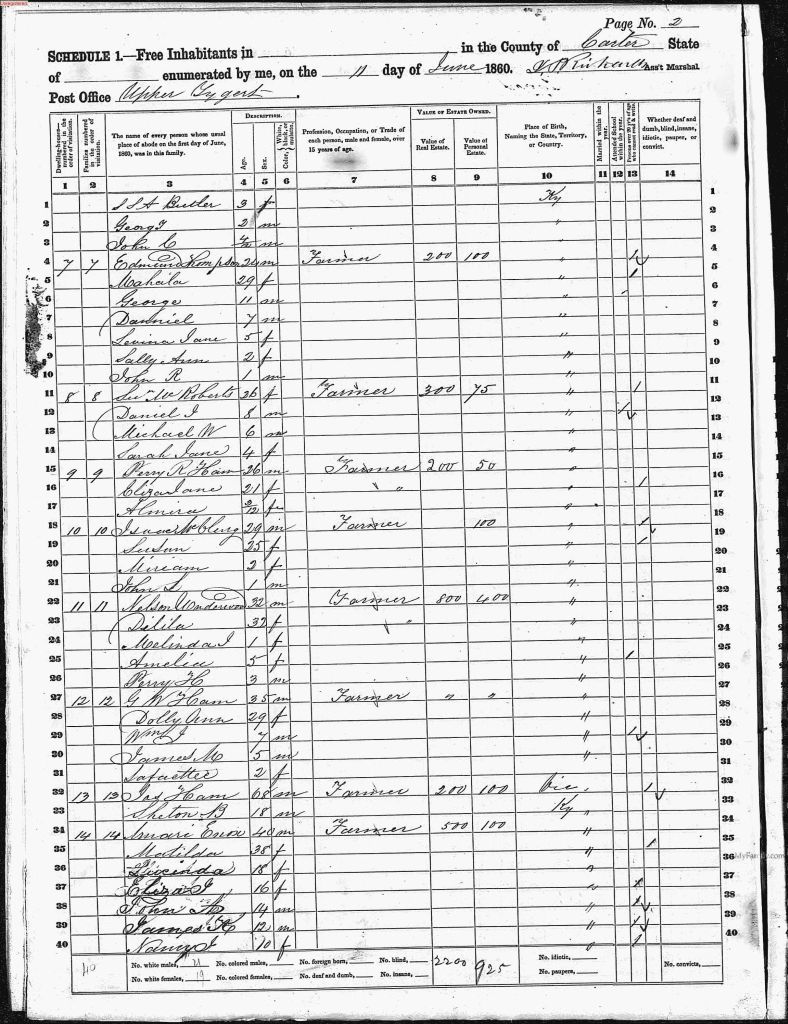 Page No. 2
SCHEDULE 1.—Free Inhabitants in in the County of Carter State
of enumerated by me, on the 11 day of June 1860. Ass't Marshal
Post Office Upper Tygert
DESCRIPTION. VALUE OF ESTATE OWNED.
Dwelling-houses—numbered in the order of visitation. Families numbered in the order of visitation. The name of every person whose usual place of abode on the first day of June, 1860, was in this family. Age. Sex. Color, White, black, or mulatto. Profession, Occupation, or Trade of each person, male and female, over 15 years of age. Value of Real Estate. Value of Personal Estate. Place of Birth, Naming the State, Territory, or Country. Married within the year. Attended School within the year. Persons over 20 years of age who cannot read & write. Whether deaf and dumb, blind, insane, idiotic, pauper, or convict.
1 2 3 4 5 6 7 8 9 10 11 12 13 14
1 S S A Butler 3 f Ky 1
2 Geo 2 m " 2
3 John C m " 3
4 7 7 Edmund Thompson 24 m Farmer 200 100 " 4
5 Mahaila 29 f " 5
6 George 11 m " 6
7 Danniel 7 m " 7
8 Levina Jane 5 f " 8
9 Sally Ann 2 f " 9
10 John R 1 m " 10
11 8 8 McRoberts 26 f Farmer 300 75 " 11
12 Daniel J 8 m " 12
13 Michael W 6 m " 13
14 Sarah Jane 4 f " 14
15 9 9 Perry R Ham 26 m Farmer 200 50 " 15
16 Eliza Jane 21 f " " 16
17 Almira 2/12 f " 17
18 10 10 Isaac McClurg 29 m Farmer 100 " 18
19 Susan 25 f " 19
20 Miream 2 f " 20
21 John L 1 m " 21
22 11 11 Nelson Underwood 32 m Farmer 800 400 " 22
23 Delila 32 f " " 23
24 Melinda J 1 f " 24
25 Amelia 5 f " 25
26 Perry H 3 m " 26
27 12 12 G W Ham 35 m Farmer " " " 27
28 Dolly Ann 29 f " 28
29 Wm J 7 m " 29
30 James M 5 m " 30
31 Lafaettee 2 f 31
32 13 13 Jas Ham 68 m Farmer 200 100 Vic. 32
33 Shelton B 18 m Ky 33
34 14 14 Enox 40 m Farmer 500 100 " 34
35 Matilda 38 f " 35
36 Lucinda 18 f " 36
37 Eliza J 16 f " 37
38 John 14 m " 38
39 James H 12 m " 39
40 Nancy J 10 f " 40
40 No. white males, 21 No. colored males, No. foreign born, No. blind, 2200 925 No. idiotic, No. convicts,
No. white females, 19 No. colored females, No. deaf and dumb, No. insane, No. paupers,
MyFamily.com